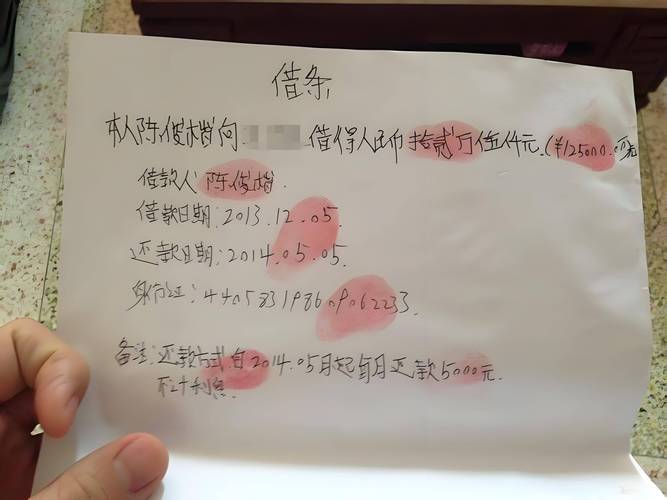 借条
本人陈俊楷向 借得人民币拾贰万伍仟元.(¥125000.00元
借款人:陈俊楷.
借款日期:2013.12.05.
还款日期:2014.05.05.
身份证:440583198609062233.
备注:还款方式自2014.05月起每月还款5000元.
不计利息.